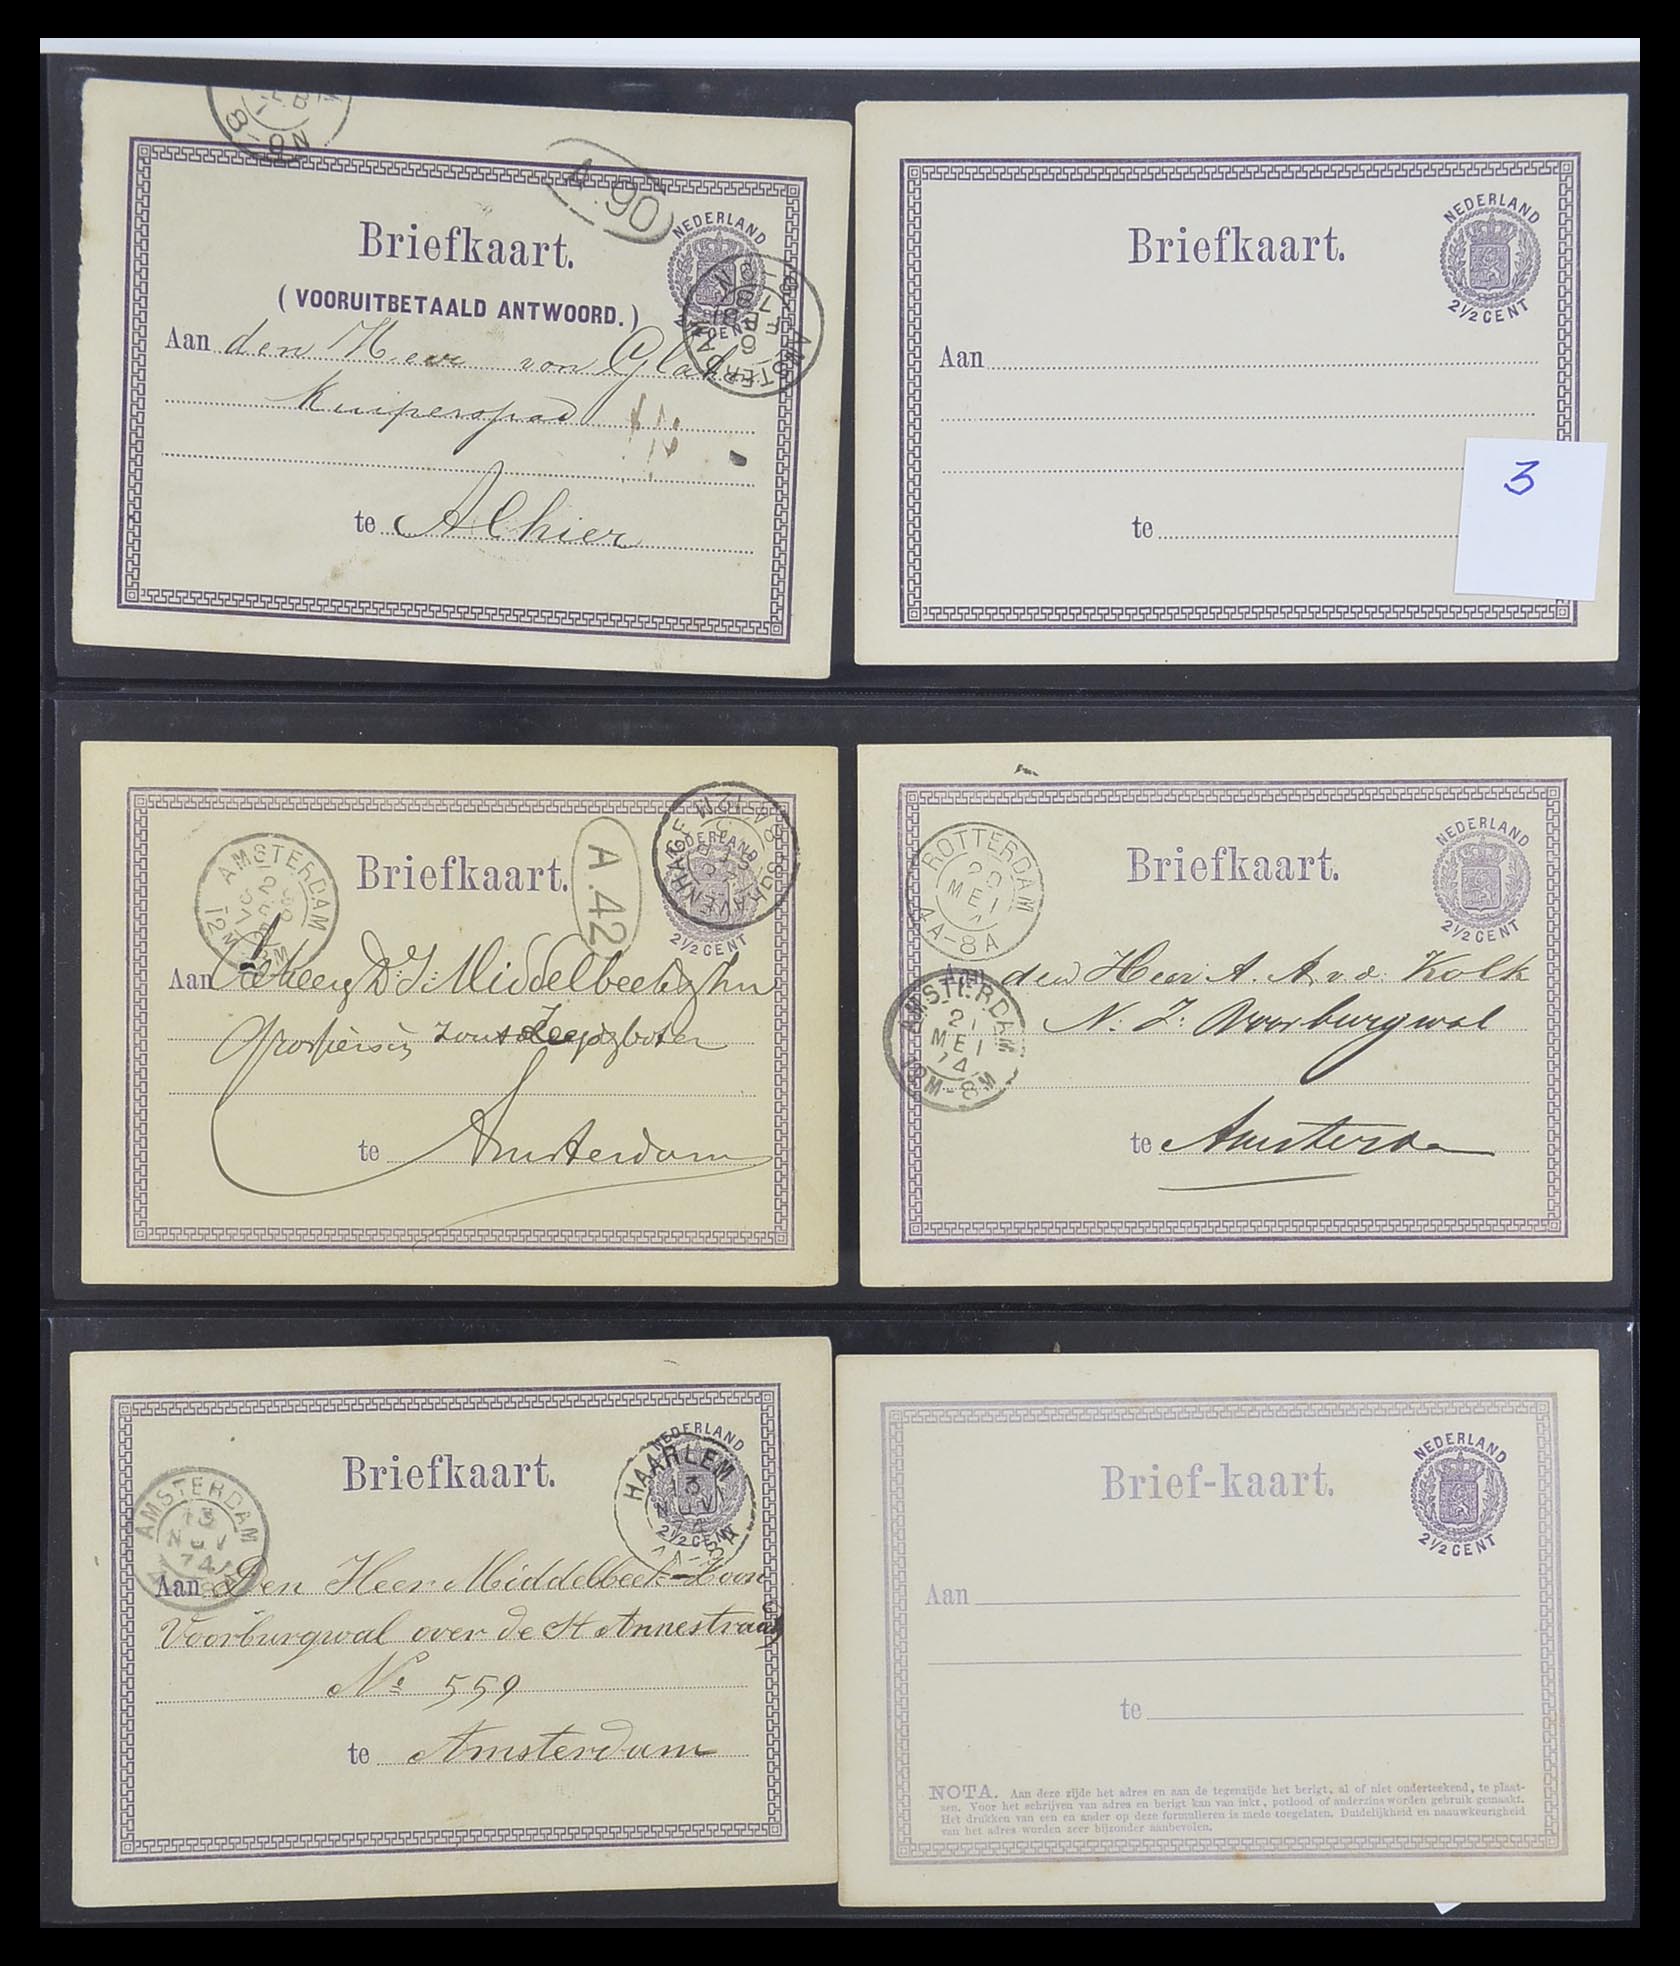 8-9N
A.90
NEDERLAND
Briefkaart.
(VOORUITBETAALD ANTWOORD.)
2½ CENT
AMSTERDAM
Aan den Heer von Glah
Kuiperspad
te Alhier
NEDERLAND
Briefkaart.
2½ CENT
Aan
3
te
AMSTERDAM
Briefkaart.
A.42
NEDERLAND
2½ CENT
Aan
te Amsterdam
ROTTERDAM
20
MEI
4A-8A
NEDERLAND
Briefkaart.
2½ CENT
Aan den Heer A. A. v. d. Kolk
AMSTERDAM
21
MEI
74
N. Z. Voorburgwal
te Amsterda
NEDERLAND
HAARLEM
13
NOV
Briefkaart.
2½ CENT
AMSTERDAM
13
NOV
74
Aan Den Heer Middelbeek-Loon
Voorburgwal over de St Annestraat
No 559
te Amsterdam
NEDERLAND
Brief-kaart.
2½ CENT
Aan
te
NOTA. Aan deze zijde het adres en aan de tegenzijde het berigt, al of niet onderteekend, te plaat-
sen. Voor het schrijven van adres en berigt kan van inkt, potlood of anderzins worden gebruik gemaakt.
Het drukken van een en ander op deze formulieren is mede toegelaten. Duidelijkheid en naauwkeurigheid
van het adres worden zeer bijzonder aanbevolen.